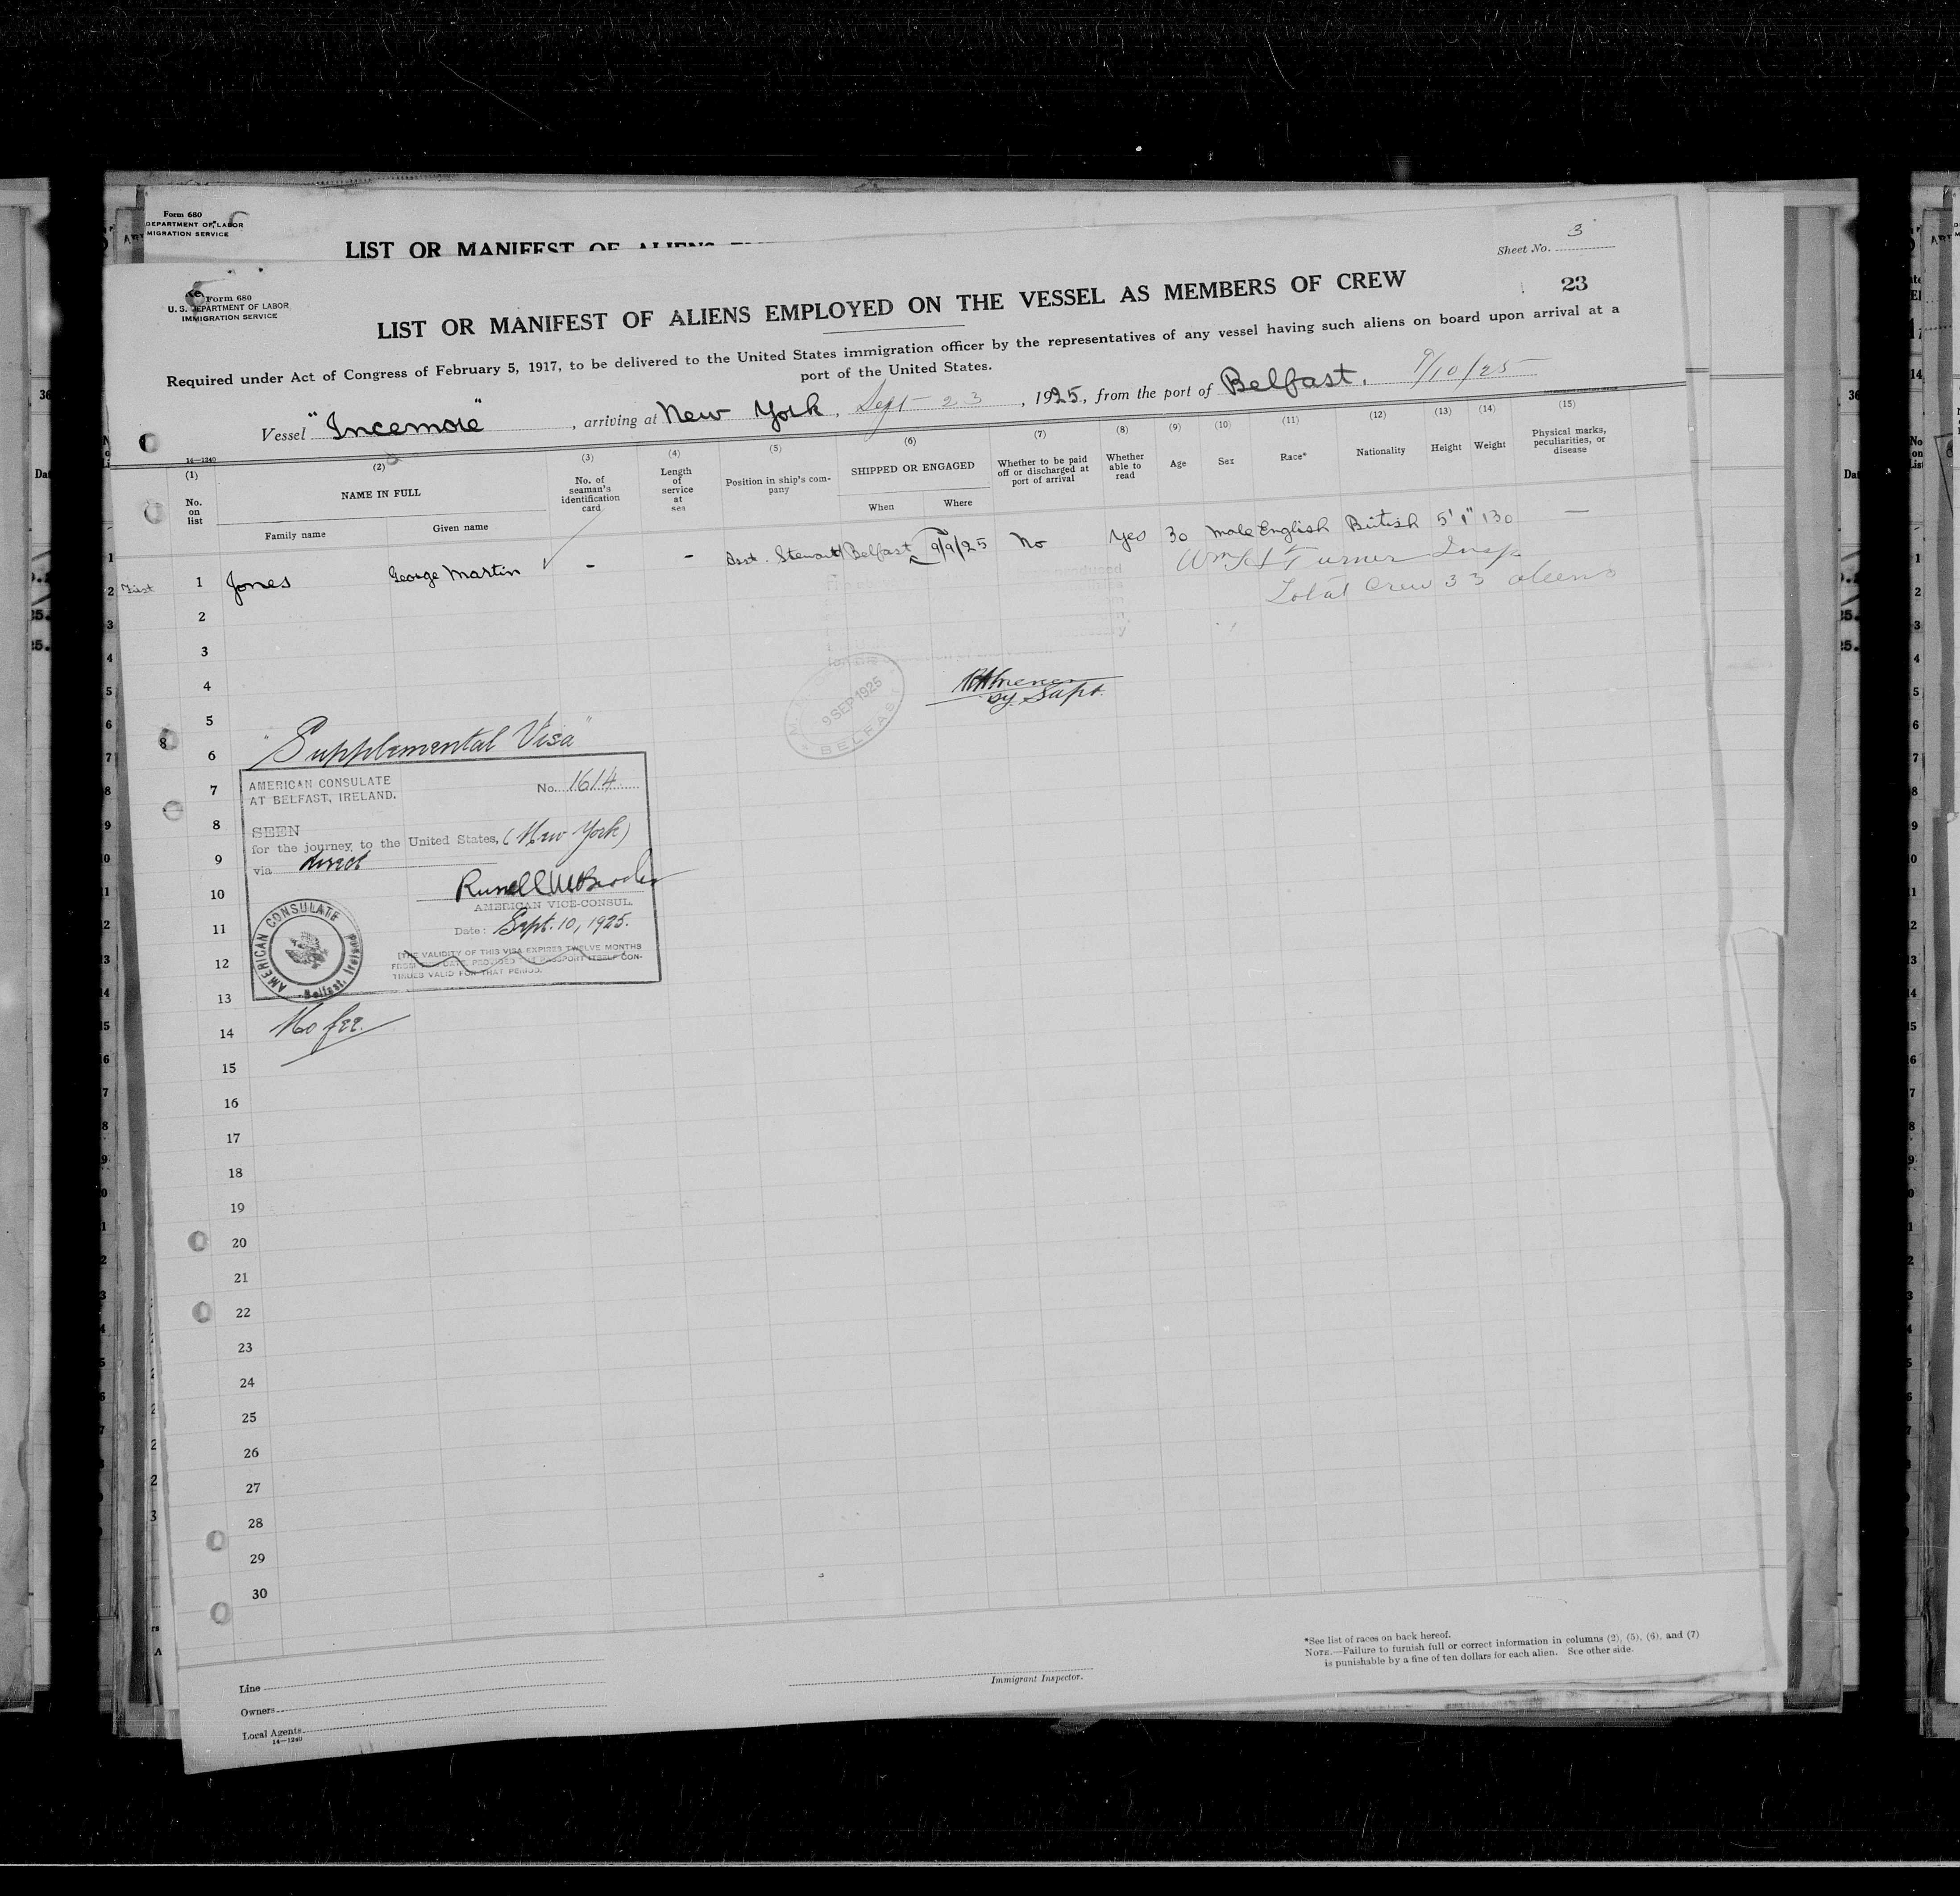 Form 680
DEPARTMENT OF LABOR
MIGRATION SERVICE
LIST OR MANIFEST OF ALIENS
Sheet No. 3
23
Form 680
U. S. DEPARTMENT OF LABOR
IMMIGRATION SERVICE
LIST OR MANIFEST OF ALIENS EMPLOYED ON THE VESSEL AS MEMBERS OF CREW
Required under Act of Congress of February 5, 1917, to be delivered to the United States immigration officer by the representatives of any vessel having such aliens on board upon arrival at a
port of the United States.
Vessel "Incemore", arriving at New York, Sept 23, 1925, from the port of Belfast. 9/10/25
14—1240
(1) (2) (3) (4) (5) (6) (7) (8) (9) (10) (11) (12) (13) (14) (15)
No. on list
NAME IN FULL
Family name
Given name
No. of seaman's identification card
Length of service at sea
Position in ship's company
SHIPPED OR ENGAGED
When
Where
Whether to be paid off or discharged at port of arrival
Whether able to read
Age
Sex
Race*
Nationality
Height
Weight
Physical marks, peculiarities, or disease
First 1 Jones George Martin – – Asst. Steward Belfast 9/9/25 No Yes 30 Male English British 5'1" 130 —
Turner Insp
Total Crew 33 aliens
2
3
4
5
6
7
8
9
10
11
12
13
14
15
16
17
18
19
20
21
22
23
24
25
26
27
28
29
30
9 SEP 1925
BELFAST
Dy. Supt.
"Supplemental Visa"
AMERICAN CONSULATE
AT BELFAST, IRELAND.
No. 1614
SEEN
for the journey to the United States, (New York)
via direct
AMERICAN VICE-CONSUL.
Date: Sept. 10, 1925.
[THE VALIDITY OF THIS VISA EXPIRES TWELVE MONTHS
FROM THIS DATE, PROVIDED THE PASSPORT ITSELF CON-
TINUES VALID FOR THAT PERIOD.
AMERICAN CONSULATE
Belfast, Ireland
No fee.
*See list of races on back hereof.
NOTE.—Failure to furnish full or correct information in columns (2), (5), (6), and (7)
is punishable by a fine of ten dollars for each alien. See other side.
Immigrant Inspector.
Line
Owners
Local Agents
14—1240